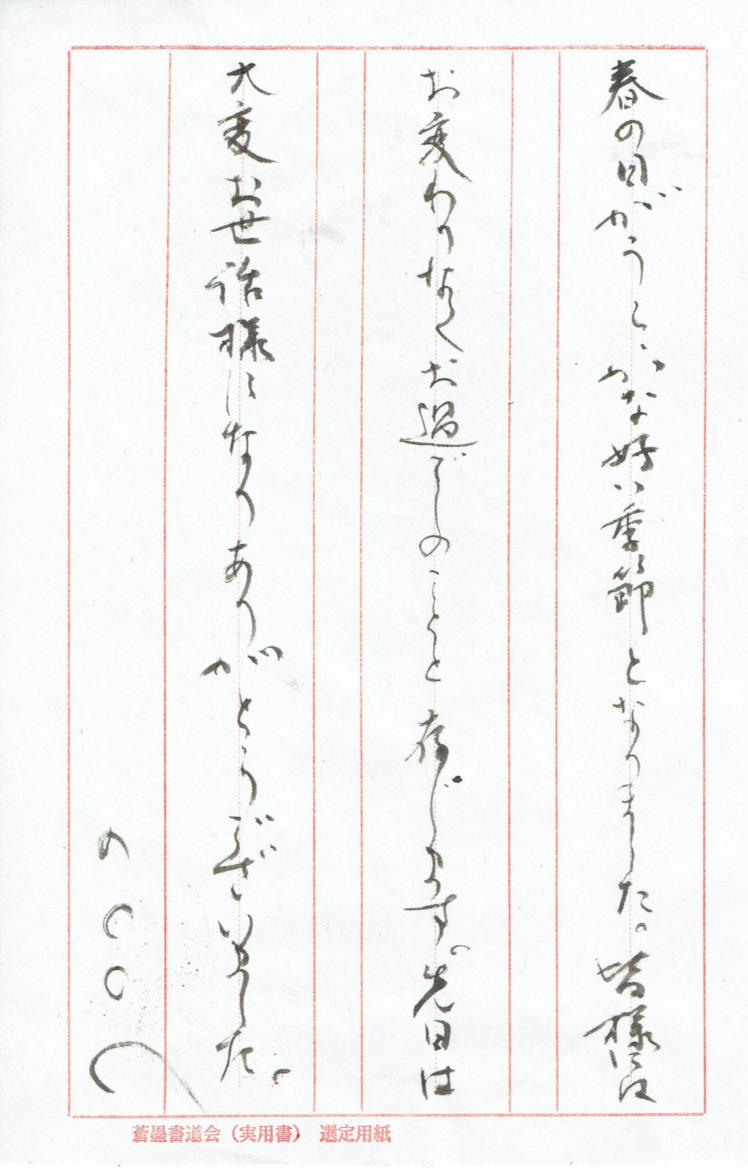 春の日がうららかな好い季節となりました。皆様には
お変わりなくお過ごしのことと存じます。先日は
大変お世話様になりありがとうございました。
蒼墨書道会(実用書) 選定用紙